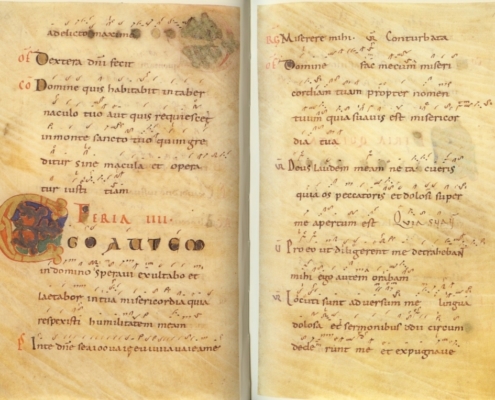 adelicto maximo
OF Dextera dñi fecit
CO Domine quis habitabit intaber
naculo tuo aut quis requiescet
inmonte sancto tuo quiingre
ditur sine macula et opera
tur iusti tiam
FERIA IIII.
EGO AUTEM
in domino speravi exultabo et
laetabor intua misericordia quia
respexisti humilitatem meam
P Inte dñe
RG Miserere mihi. V Conturbata
OF Domine fac mecum miseri
cordiam tuam propter nomen
tuum quia suavis est misericor
dia tua
V Deus laudem meam ne ta cueris
quia os peccatoris et dolosi super
me apertum est Quia suavis
V Pro eo ut diligerent me detraheban
mihi ego autem orabam
V Locuti sunt adversum me lingua
dolosa et sermonibus odii circum
dede runt me et expugnave